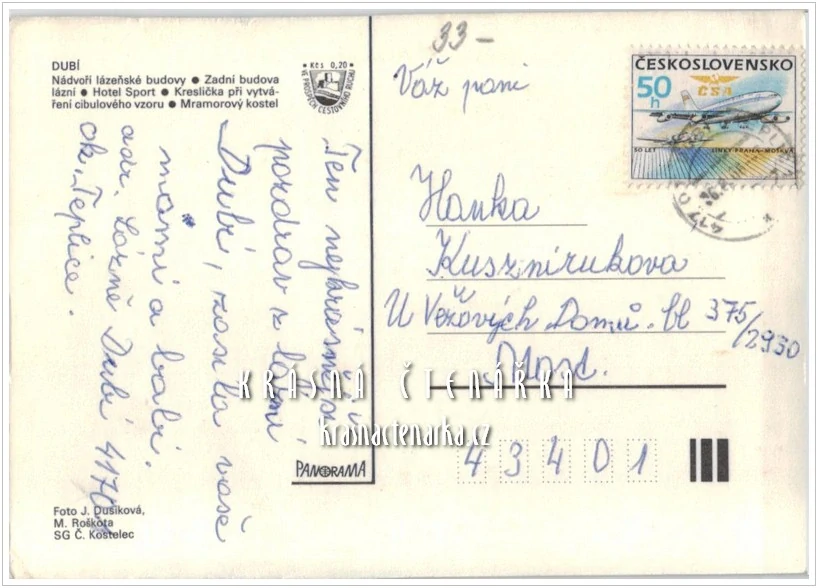 DUBÍ
Nádvoří lázeňské budovy ● Zadní budova
lázní ● Hotel Sport ● Kreslička při vytvá-
ření cibulového vzoru ● Mramorový kostel
Kčs 0,20
VE PROSPĚCH CESTOVNÍHO RUCHU
Ten nejkrásnější
pozdrav z lázní
Dubí, zasílá vaše
mami a babi.
adr. Lázně Dubí 4170
ok. Teplice.
PANORAMA
Foto J. Dušíková,
M. Roškota
SG Č. Kostelec
33-
Váž paní
ČESKOSLOVENSKO
50 h
ČSA
50 LET LINKY PRAHA-MOSKVA
417 0
Hanka
Kusznirukova
U Věžových Domů. bl 375/2930
Most.
43401
KRÁSNÁ ČTENÁŘKA
krasnactenarka.cz